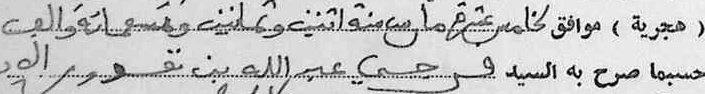 ( هجرية ) موافق لخامس عشر مارس سنة اثنين وثمانين وتسعمائة والف
حسبما صرح به السيد عبد الله بن